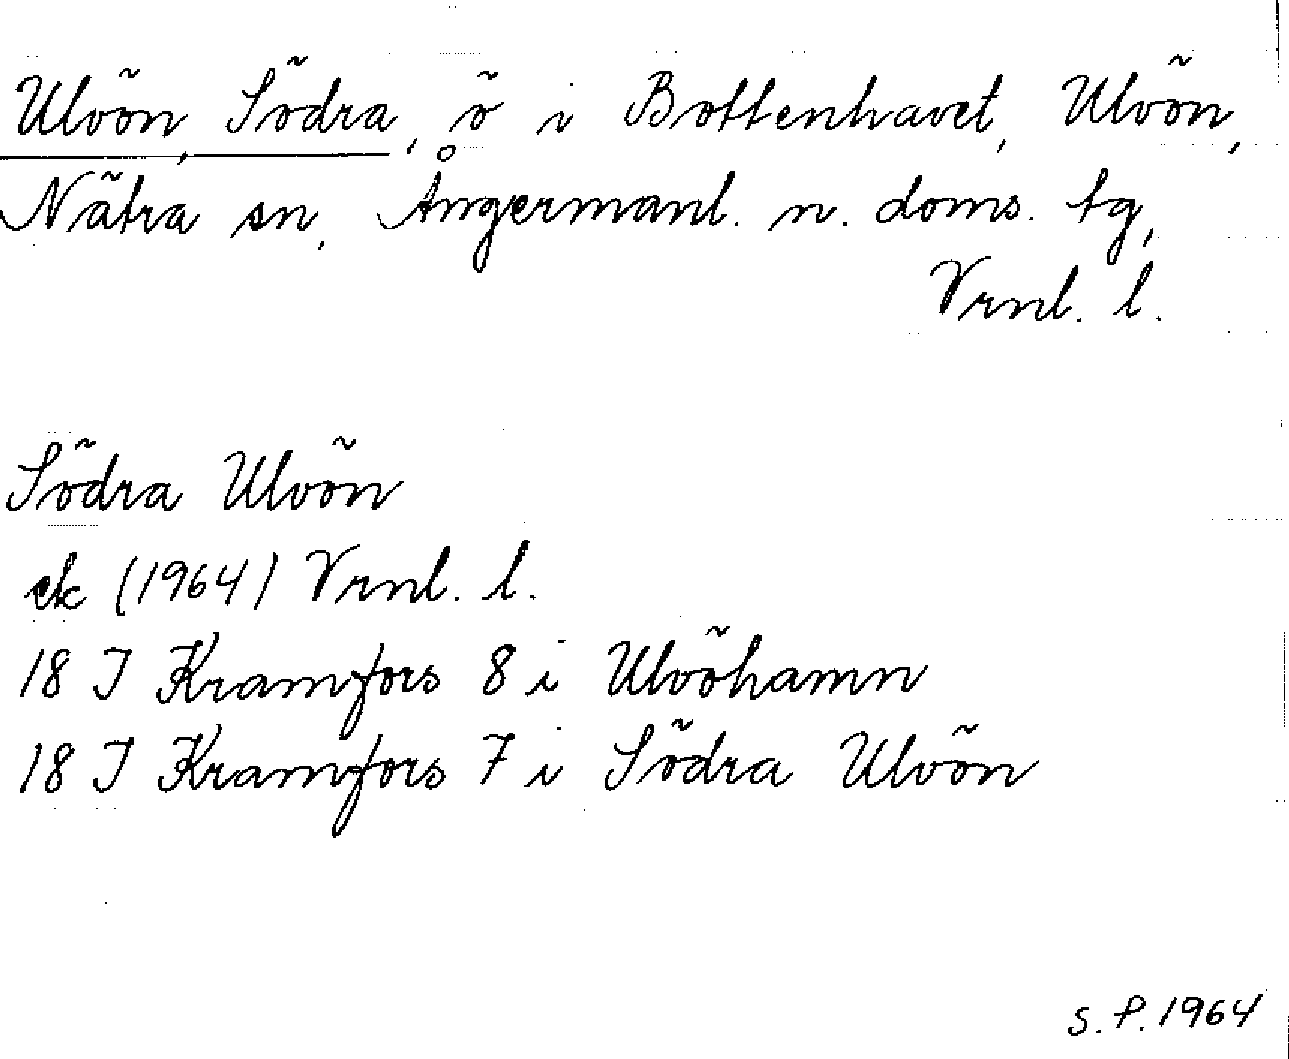 Ulvön, Södra, ö i Bottenhavet, Ulvön,
Nätra sn, Ångermanl. n. doms. tg,
Vrnl. l.
Södra Ulvön
ek (1964) Vrnl. l.
18 I Kramfors 8 i Ulvöhamn
18 I Kramfors 7 i Södra Ulvön
S. P. 1964